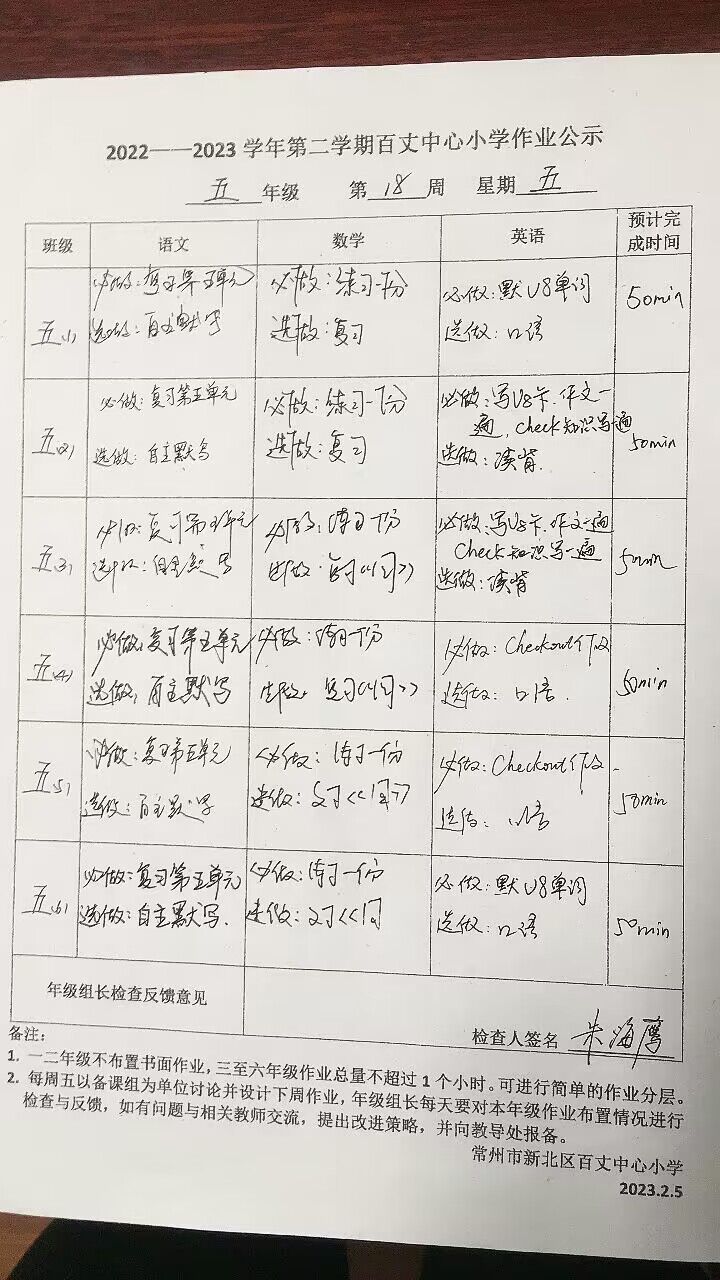 2022——2023 学年第二学期百丈中心小学作业公示
五 年级 第 18 周 星期 五
班级 语文 数学 英语 预计完成时间
五(1)
必做:复习第五单元
选做:自主默写
必做:练习一份
选做:复习
必做:默U8单词
选做:口语
50min
五(2)
必做:复习第五单元
选做:自主默写
必做:练习一份
选做:复习
必做:写U8卡.作文一
遍,check知识写一遍
选做:读背.
50min
五(3)
必做:复习第五单元
选做:自主默写
必做:练习一份
选做:复习
必做:写U8卡.作文一遍
Check知识写一遍
选做:读背
50min
五(4)
必做:复习第五单元
选做:自主默写
必做:练习一份
选做:复习
必做:Checkout
选做:口语.
50min
五(5)
必做:复习第五单元
选做:自主默写
必做:练习一份
选做:复习
必做:Checkout
选做:口语
50min
五(6)
必做:复习第五单元
选做:自主默写.
必做:练习一份
选做:复习
必做:默U8单词
选做:口语
50min
年级组长检查反馈意见
检查人签名 朱海鹰
备注:
1. 一二年级不布置书面作业,三至六年级作业总量不超过 1 个小时。可进行简单的作业分层。
2. 每周五以备课组为单位讨论并设计下周作业,年级组长每天要对本年级作业布置情况进行
检查与反馈,如有问题与相关教师交流,提出改进策略,并向教导处报备。
常州市新北区百丈中心小学
2023.2.5